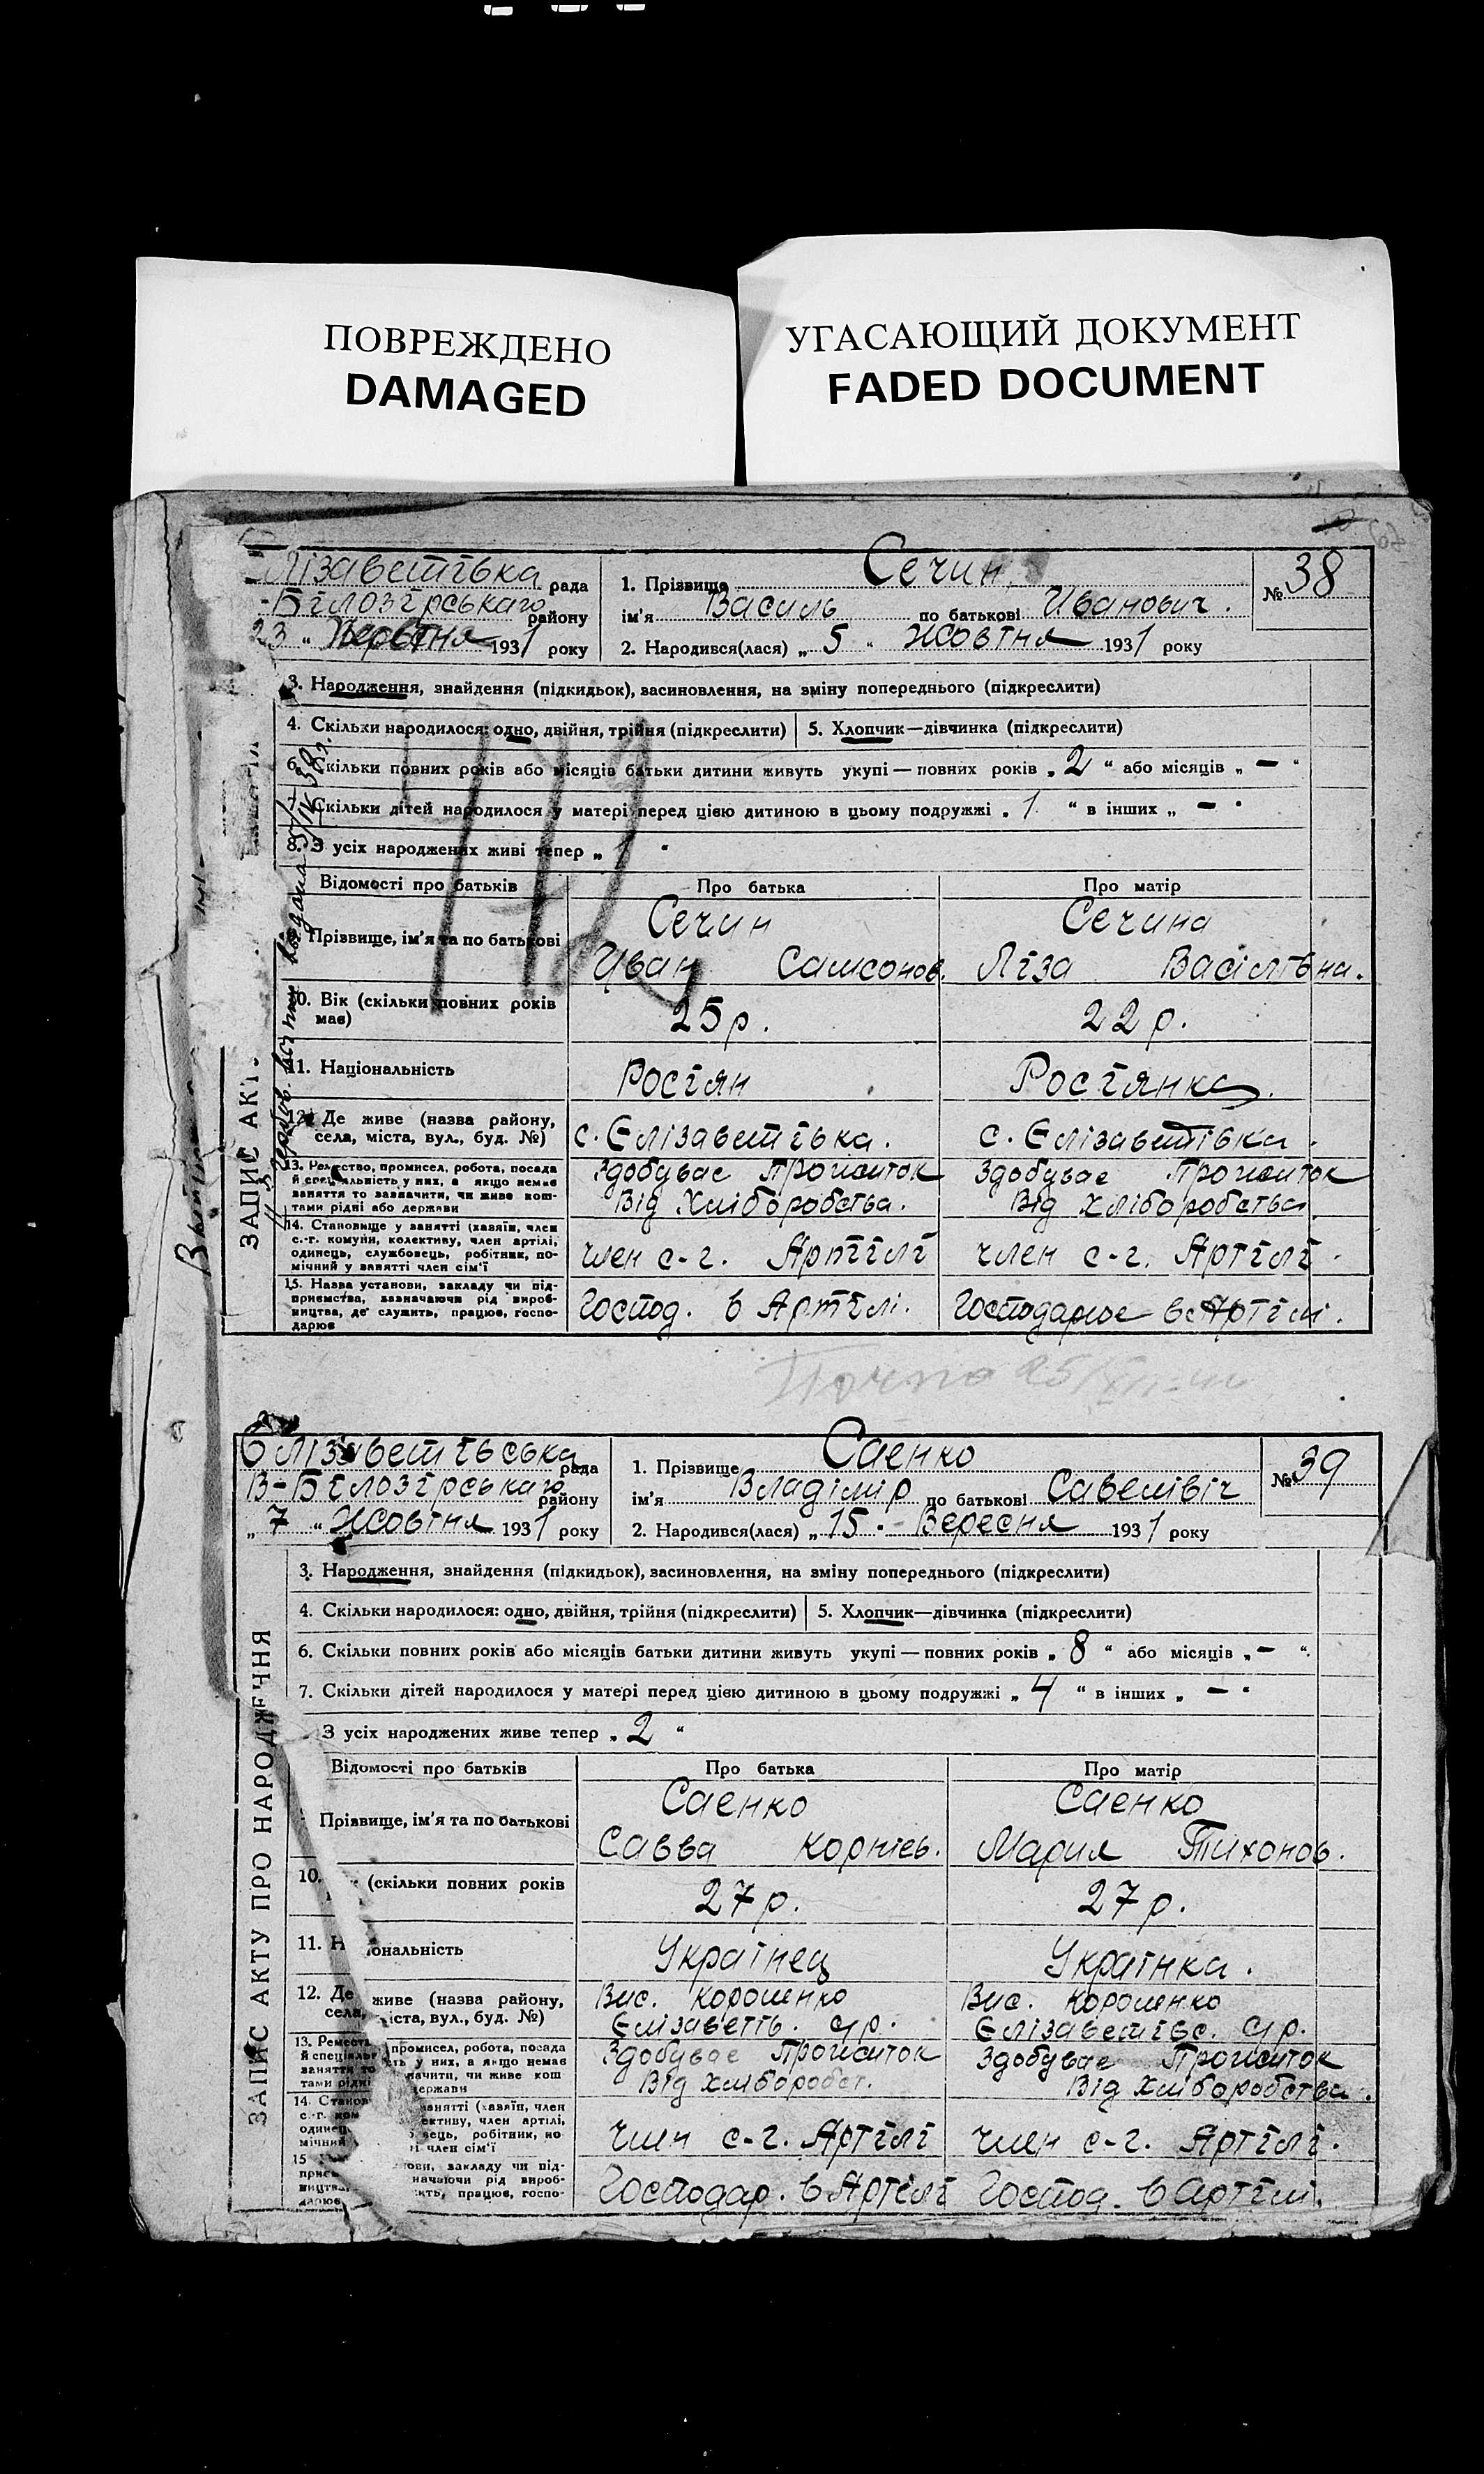 ПОВРЕЖДЕНО
DAMAGED
УГАСАЮЩИЙ ДОКУМЕНТ
FADED DOCUMENT
лізаветівка рада
-Білозірськаго району
23 " 1931 року
1. Прізвище Сечин
ім'я Василь по батькові Иванович.
№ 38
2. Народився(лася) „ 5 " Жовтня 1931 року
3. Народження, знайдення (підкидьок), засиновлення, на зміну попереднього (підкреслити)
4. Скільки народилося: одно, двійня, трійня (підкреслити)
5. Хлопчик—дівчинка (підкреслити)
6. Скільки повних років або місяців батьки дитини живуть укупі — повних років „ 2 " або місяців „ — "
7. Скільки дітей народилося у матері перед цією дитиною в цьому подружжі „ 1 " в інших „ — "
8. З усіх народжених живі тепер „ 1 "
Відомості про батьків
Про батька
Про матір
9. Прізвище, ім'я та по батькові
Сечин
Иван Самсонов.
Сечина
Ліза Васілівна.
10. Вік (скільки повних років
має)
25 р.
22 р.
11. Національність
Росіян
Росіянка.
12. Де живе (назва району,
села, міста, вул., буд. №)
с. Єлізаветівка.
с. Єлізаветівка.
13. Ремество, промисел, робота, посада
й спеціяльність у них, а якщо немає
заняття то зазначити, чи живе кош-
тами рідні або держави
Здобуває Прожиток
Від Хліборобства.
Здобуває Прожиток
Від Хліборобства.
14. Становище у занятті (хазяїн, член
с.-г. комуни, колективу, член артілі,
одинець, службовець, робітник, по-
мічний у занятті член сім'ї
член с-г. Артілі
член с-г. Артілі.
15. Назва установи, закладу чи під-
приємства, зазначаючи рід вироб-
ництва, де служить, працює, госпо-
дарює
Господ. в Артілі.
Господарює в Артілі.
ЗАПИС АКТ
Єлізаветівська рада
В-Білозірськаго району
„ 7 " Жовтня 1931 року
1. Прізвище Саенко
ім'я Владімір по батькові Савелівіч
№ 39
2. Народився(лася) „ 15. - Вересня 1931 року
3. Народження, знайдення (підкидьок), засиновлення, на зміну попереднього (підкреслити)
4. Скільки народилося: одно, двійня, трійня (підкреслити)
5. Хлопчик—дівчинка (підкреслити)
6. Скільки повних років або місяців батьки дитини живуть укупі — повних років „ 8 " або місяців „ — "
7. Скільки дітей народилося у матері перед цією дитиною в цьому подружжі „ 4 " в інших „ — "
З усіх народжених живе тепер „ 2 "
Відомості про батьків
Про батька
Про матір
Прізвище, ім'я та по батькові
Саенко
Савва Корнієв.
Саенко
Мария Тихонов.
10. (скільки повних років
27 р.
27 р.
11. Н ональність
Українец
Українка.
12. Де живе (назва району,
села, міста, вул., буд. №)
Вис. Короленко
Єлізаветів. с/р.
Вис. Короленко
Єлізаветівс. с/р.
13. Ремест промисел, робота, посада
й спеціяль ть у них, а якщо немає
заняття то начити, чи живе кош
тами рідні держави
Здобуває Прожиток
Від хлібороб ст.
Здобуває Прожиток
Від хліборобства.
14. Станов занятті (хазяїн, член
с.-г. ком ективу, член артілі,
одинец вець, робітник, по
мічний і член сім'ї
Член с-г. Артілі
Член с-г. Артілі.
15 нови, закладу чи під-
приє начаючи рід вироб-
ництва, ить, працює, госпо-
дарює
Господар. в Артілі
Господ. в Артілі.
ЗАПИС АКТУ ПРО НАРОДЖЕННЯ